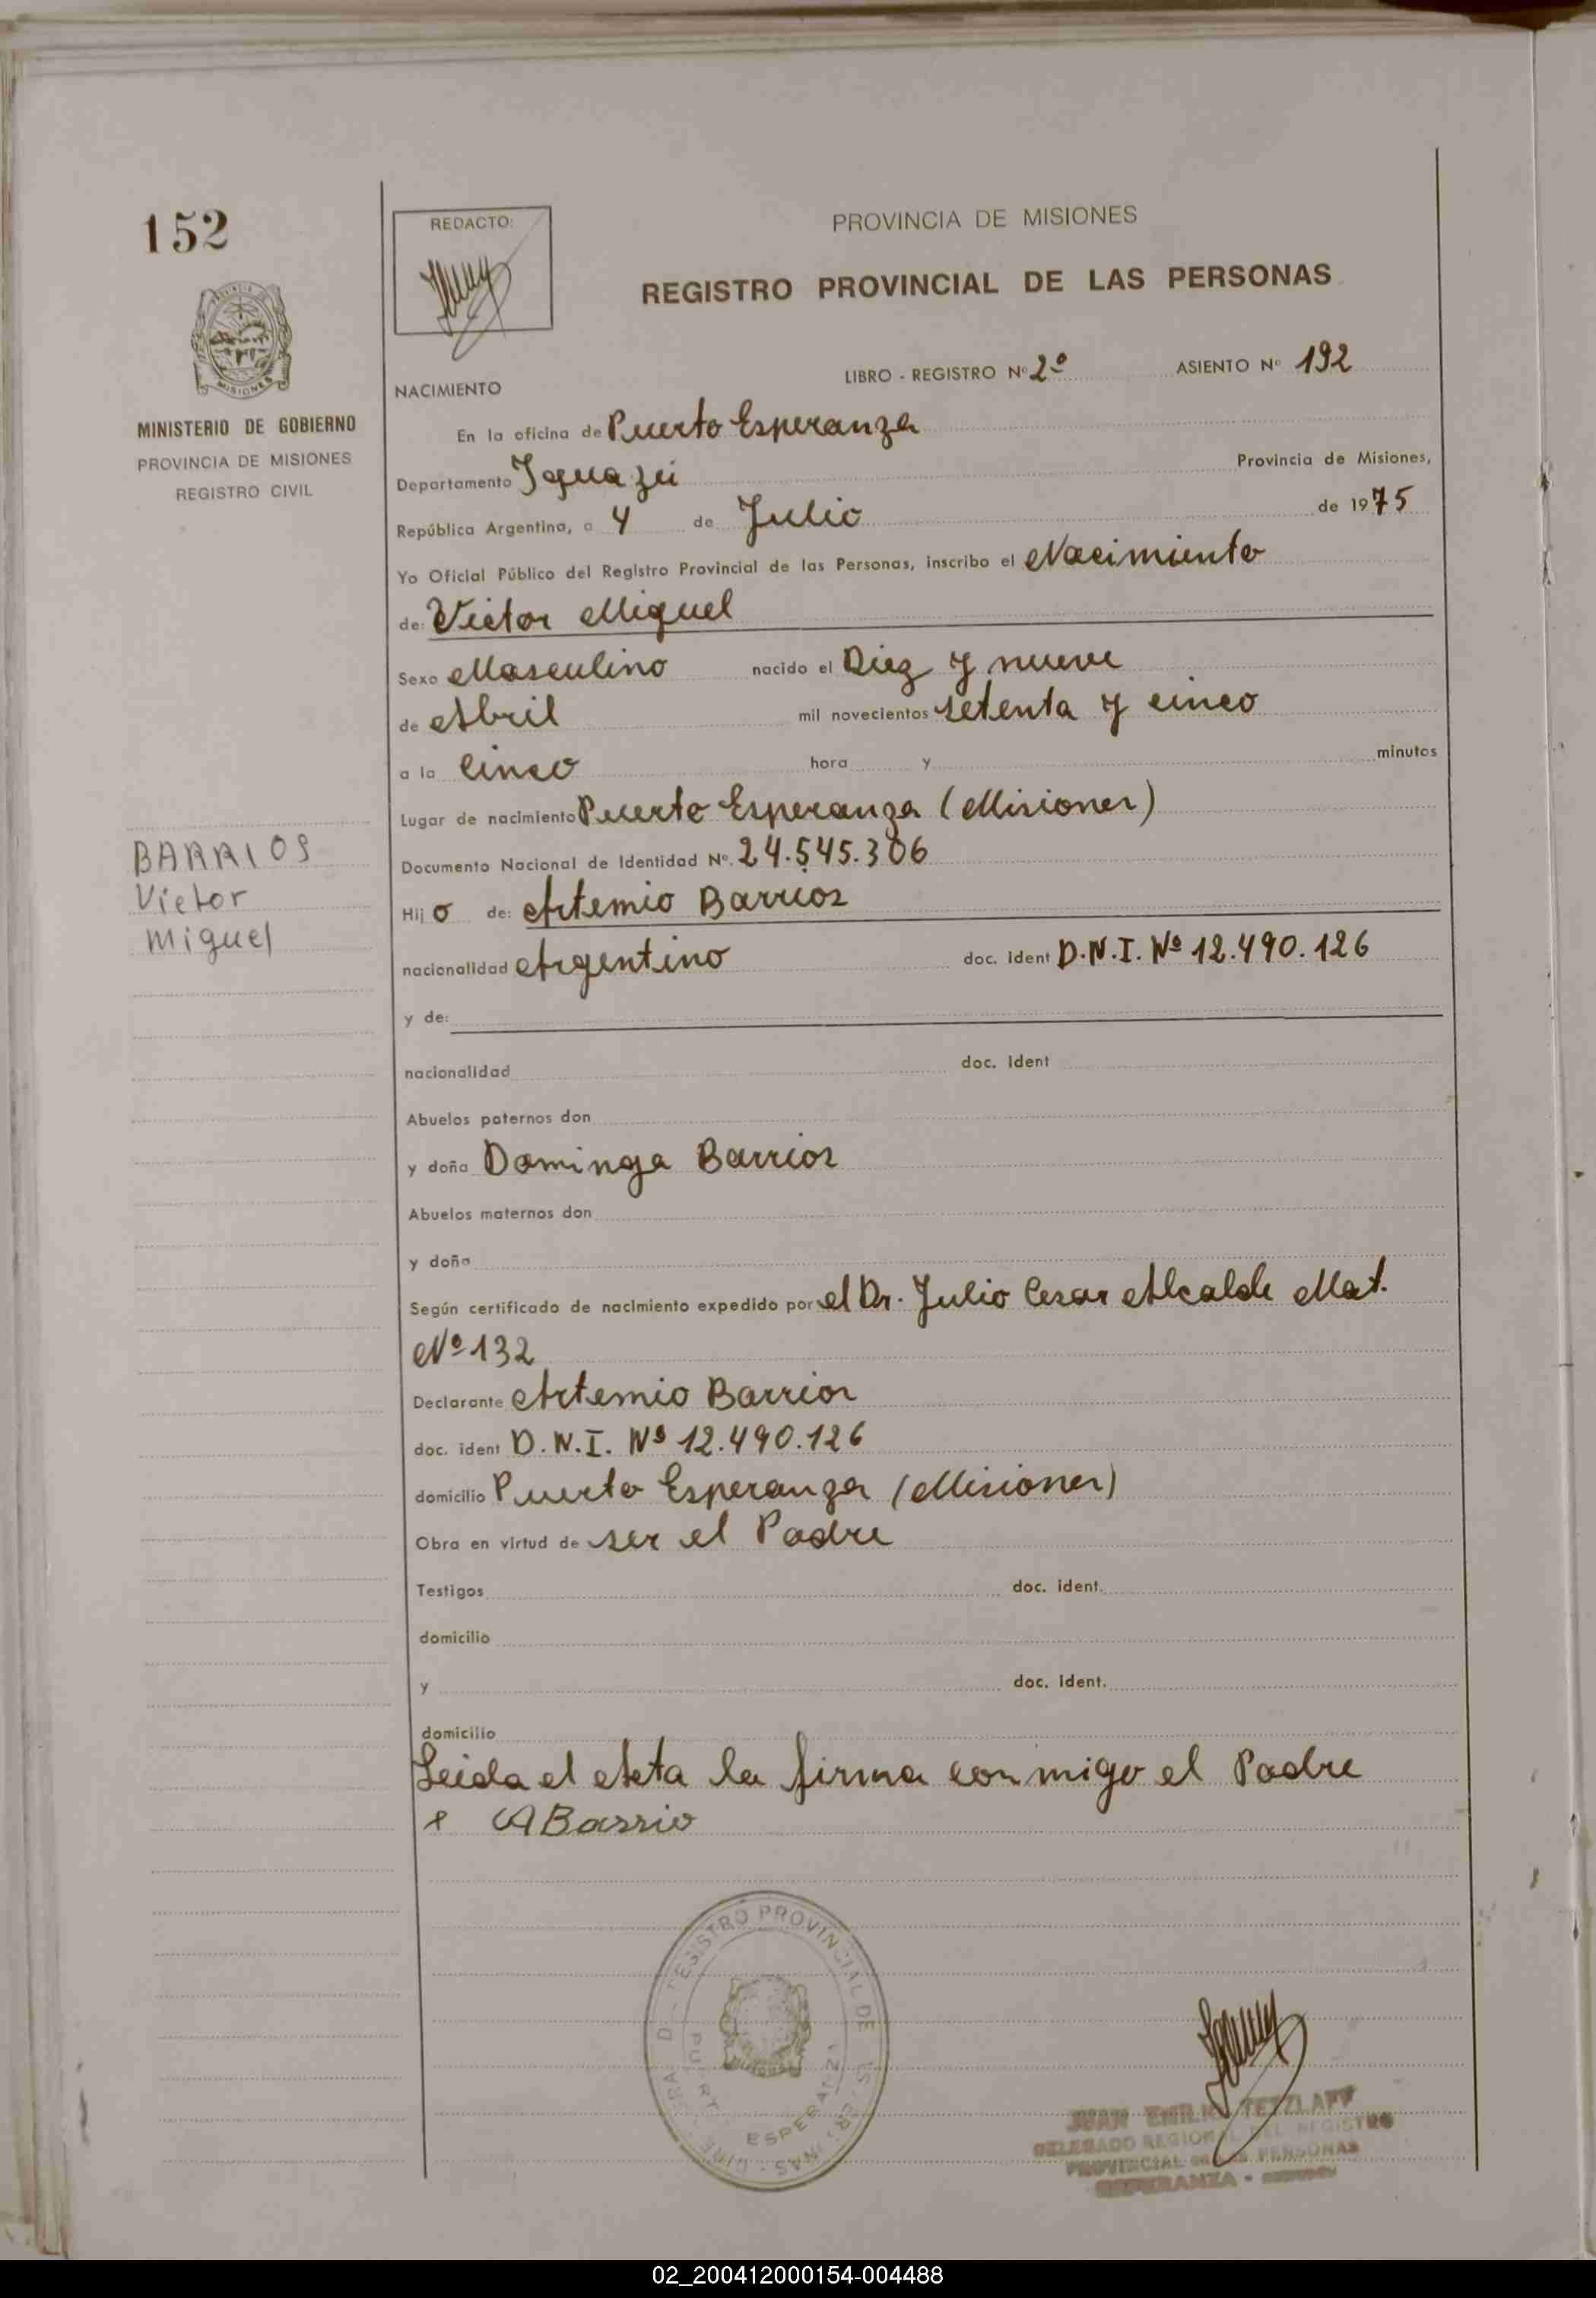 152
REDACTO:
PROVINCIA DE MISIONES
REGISTRO PROVINCIAL DE LAS PERSONAS
MISIONES
MINISTERIO DE GOBIERNO
PROVINCIA DE MISIONES
REGISTRO CIVIL
LIBRO - REGISTRO Nº 2º ASIENTO Nº 192
NACIMIENTO
En la oficina de Puerto Esperanza
Departamento Iguazú Provincia de Misiones,
República Argentina, a 4 de Julio de 1975
Yo Oficial Público del Registro Provincial de las Personas, inscribo el Nacimiento
de: Victor Miguel
Sexo Masculino nacido el Diez y nueve
de Abril mil novecientos setenta y cinco
a la Cinco hora y minutos
Lugar de nacimiento Puerto Esperanza (Misiones)
BARRIOS
Victor
Miguel
Documento Nacional de Identidad Nº. 24.545.306
Hijo de: Artemio Barrios
nacionalidad Argentino doc. ident D.N.I. Nº 12.490.126
y de:
nacionalidad doc. ident
Abuelos paternos don
y doña Dominga Barrios
Abuelos maternos don
y doña
Según certificado de nacimiento expedido por el Dr. Julio Cesar Alcalde Mat.
Nº 132
Declarante Artemio Barrios
doc. ident D.N.I. Nº 12.490.126
domicilio Puerto Esperanza (Misiones)
Obra en virtud de ser el Padre
Testigos doc. ident.
domicilio
y doc. ident.
domicilio
Leida el Acta la firma conmigo el Padre
x ABarrio
REGISTRO PROVINCIAL DE
ESPERANZA
JUAN EMILIO TETZLAFF
DELEGADO REGIONAL DEL REGISTRO
PROVINCIAL DE LAS PERSONAS
ESPERANZA -
02_200412000154-004488